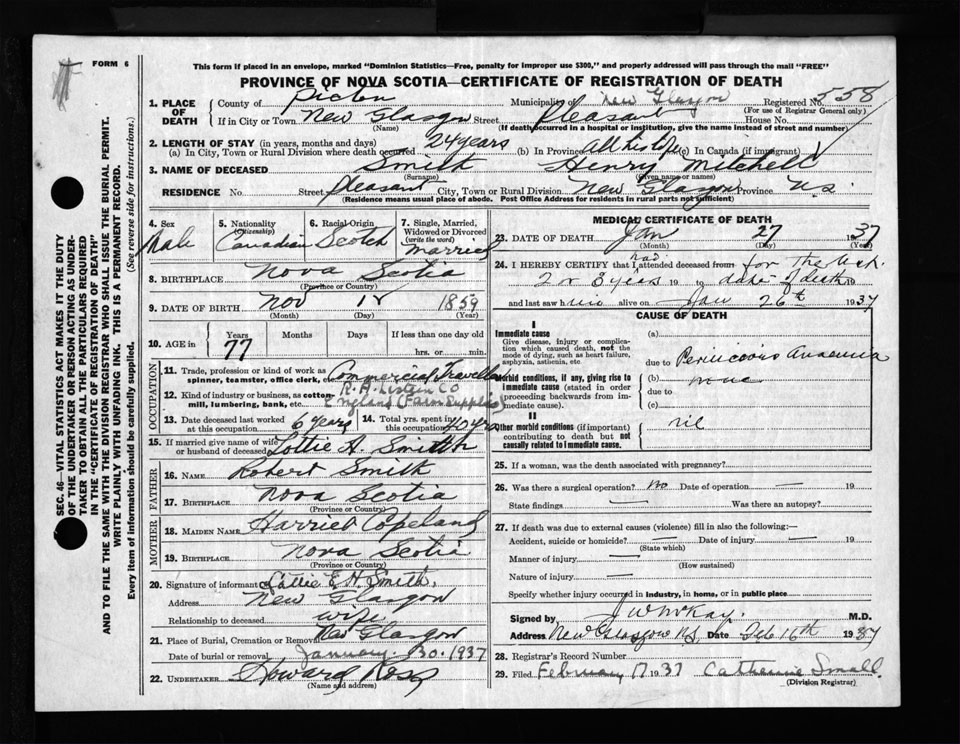 FORM 6
This form if placed in an envelope, marked "Dominion Statistics—Free, penalty for improper use $300," and properly addressed will pass through the mail "FREE"
PROVINCE OF NOVA SCOTIA—CERTIFICATE OF REGISTRATION OF DEATH
1. PLACE OF DEATH
County of Pictou Municipality of New Glasgow Registered No. 558
(For use of Registrar General only)
If in City or Town New Glasgow Street Pleasant House No.
(Name) (If death occurred in a hospital or institution, give the name instead of street and number)
2. LENGTH OF STAY (in years, months and days)
(a) In City, Town or Rural Division where death occurred 24 years (b) In Province All his life (c) In Canada (if immigrant)
3. NAME OF DECEASED Smith Henry Mitchell
(Surname) (Given name or names)
RESIDENCE No. Street Pleasant City, Town or Rural Division New Glasgow Province N.S.
(Residence means usual place of abode. Post Office Address for residents in rural parts not sufficient)
SEC. 46—VITAL STATISTICS ACT MAKES IT THE DUTY
OF THE UNDERTAKER OR PERSON ACTING AS UNDER-
TAKER TO OBTAIN ALL THE PARTICULARS REQUIRED
IN THE "CERTIFICATE OF REGISTRATION OF DEATH"
AND TO FILE THE SAME WITH THE DIVISION REGISTRAR WHO SHALL ISSUE THE BURIAL PERMIT.
WRITE PLAINLY WITH UNFADING INK. THIS IS A PERMANENT RECORD.
Every item of information should be carefully supplied. (See reverse side for instructions.)
4. Sex Male
5. Nationality (Citizenship) Canadian
6. Racial Origin Scotch
7. Single, Married, Widowed or Divorced (write the word) Married
8. BIRTHPLACE Nova Scotia
(Province or Country)
9. DATE OF BIRTH Nov 1859
(Month) (Day) (Year)
10. AGE in Years 77 Months Days If less than one day old
hrs. or min.
OCCUPATION
11. Trade, profession or kind of work as spinner, teamster, office clerk, etc. Commercial Traveller
12. Kind of industry or business, as cotton-mill, lumbering, bank, etc. R. A. Lister Co
England (Farm Supplies)
13. Date deceased last worked at this occupation. 6 years
14. Total yrs. spent in this occupation 40 yrs
15. If married give name of wife or husband of deceased Lottie H. Smith
FATHER
16. NAME Robert Smith
17. BIRTHPLACE Nova Scotia
(Province or Country)
MOTHER
18. MAIDEN NAME Harriet Copeland
19. BIRTHPLACE Nova Scotia
(Province or Country)
20. Signature of informant Lottie E. H. Smith.
Address New Glasgow
Relationship to deceased wife
21. Place of Burial, Cremation or Removal New Glasgow
Date of burial or removal January 30. 1937
22. UNDERTAKER Howard Ross
(Name and address)
MEDICAL CERTIFICATE OF DEATH
23. DATE OF DEATH Jan 27 1937
(Month) (Day) (Year)
24. I HEREBY CERTIFY that I had attended deceased from for the last
2 or 3 years 19 to date of death 19
and last saw him alive on Jan 26th 1937
CAUSE OF DEATH
I
Immediate cause
Give disease, injury or complication which caused death, not the mode of dying, such as heart failure, asphyxia, asthenia, etc.
(a)
due to Pernicious Anaemia
Morbid conditions, if any, giving rise to immediate cause (stated in order proceeding backwards from immediate cause).
(b) none
due to
(c)
II
Other morbid conditions (if important) contributing to death but not causally related to immediate cause.
nil
25. If a woman, was the death associated with pregnancy?
26. Was there a surgical operation? No Date of operation — 19
State findings — Was there an autopsy?
27. If death was due to external causes (violence) fill in also the following:—
Accident, suicide or homicide? — Date of injury — 19
(State which)
Manner of injury —
(How sustained)
Nature of injury —
Specify whether injury occurred in industry, in home, or in public place
Signed by J W McKay. M.D.
Address New Glasgow N.S. Date Feb 16th 1937
28. Registrar's Record Number
29. Filed February 17 1937 Catherine Small.
(Division Registrar)